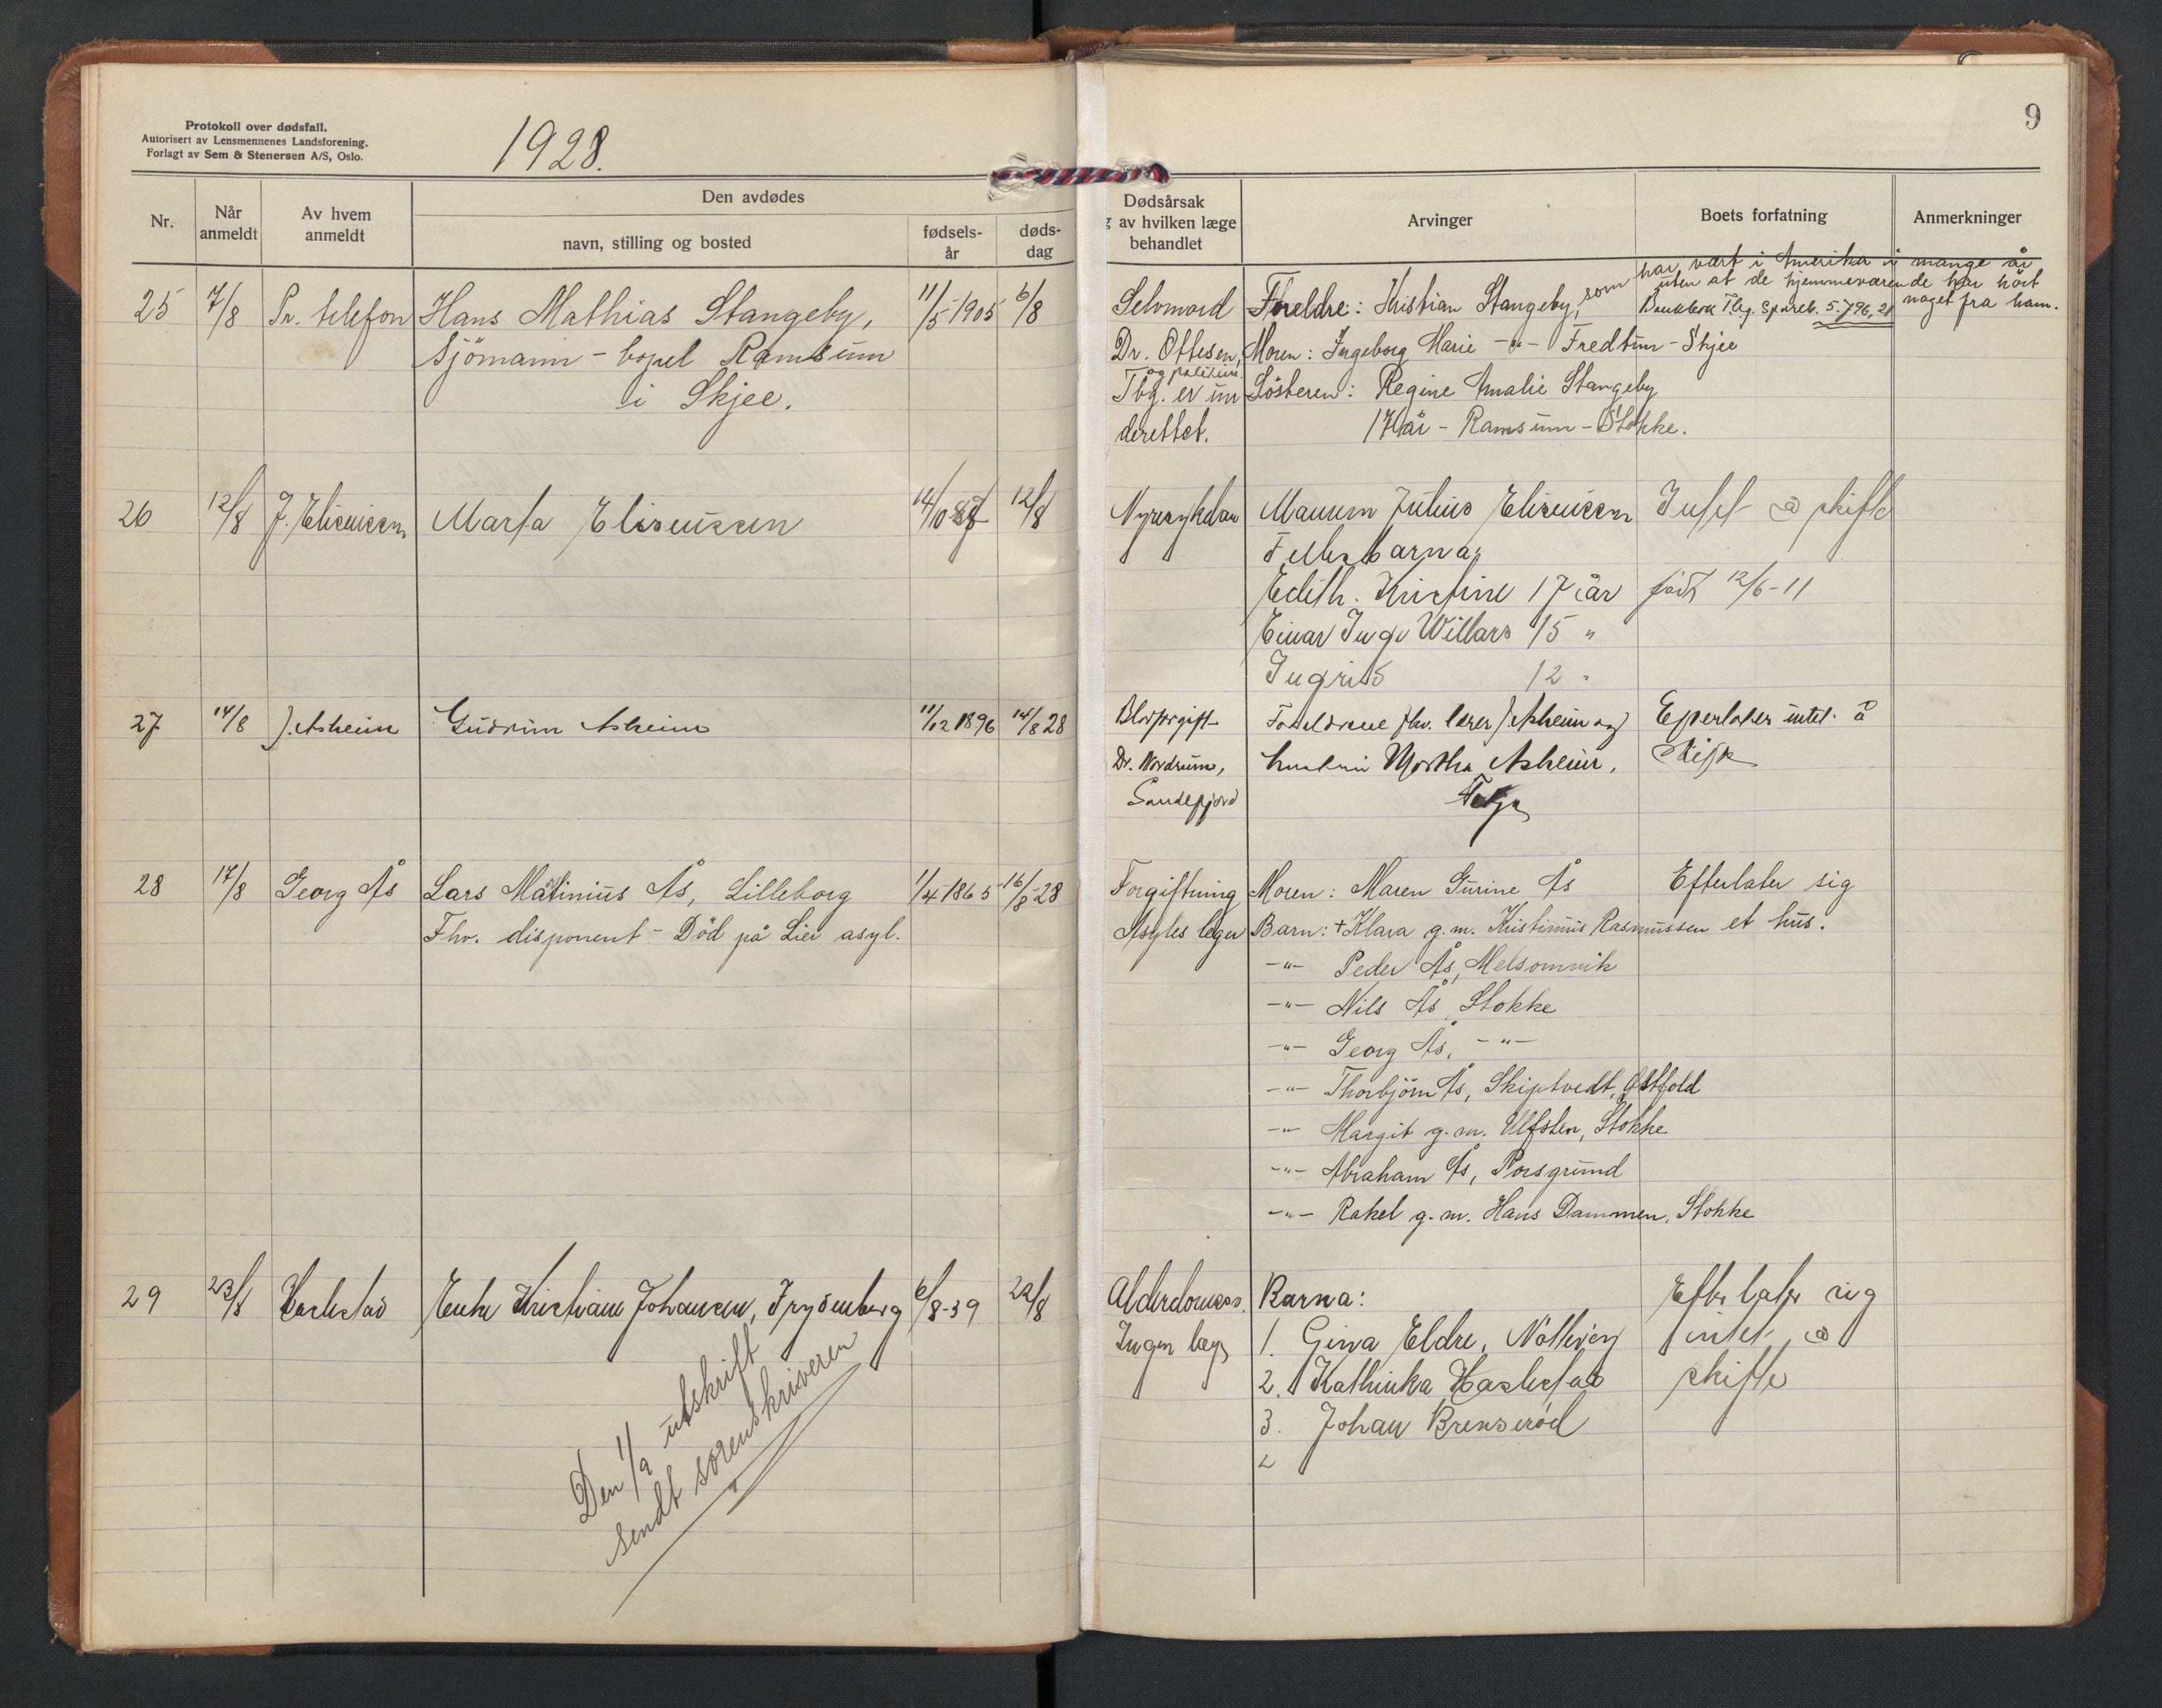 Protokoll over dødsfall.
Autorisert av Lensmennenes Landsforening.
Forlagt av Sem & Stenersen A/S, Oslo.
1928.
Nr.
Når anmeldt
Av hvem anmeldt
Den avdødes
navn, stilling og bosted
fødsels-år
døds-dag
25 7/8 Pr. telefon Hans Mathias Stangeby, 11/5 1905 6/8
Sjömann - bopel Ramsum
i Skjee.
26 12/8 J. Eliseussen Marta Eliseussen 14/10 87 12/8
27 14/8 J. Asheim Gudrun Asheim 11/12 1896 14/8 28
28 17/8 Georg Ås Lars Matinius Ås, Lilleborg 1/4-1865 16/8-28
Fhv. disponent - Död på Lier asyl.
29 23/8 Haslestad Enke Kristiane Johansen, Frydenberg 6/8-39 22/8
Den 1/9 utskrift
sendt sorenskriveren
9
Dødsårsak
g av hvilken læge
behandlet
Arvinger
Boets forfatning
Anmerkninger
har vært i Amerika i mange år
uten at de hjemmeværende har hört
noget fra ham.
Selvmord Foreldre: Kristian Stangeby, som Bankbok Tbg. Spareb. 5.796,21
Dr. Ottesen, Moren: Ingeborg Marie -"- Fredtun - Skjee
og politiet
Tbg. er un Sösteren: Regine Amalie Stangeby
derettet. 17 år - Ramsum - Stokke.
Nyresykdom Mannen Julius Eliseussen Intet å skifte
Fellesbarna:
Edith. Kristine 17 år født 12/6-11
Einar Inge Willars 15 "
Ingrid 12 "
Blodforgift Foreldrene fhv. lærer J Asheim og Efterlater intet å
Dr. Nordrum, hustru Martha Asheim, skifte
Sandefjord
Forgiftning Moren: Maren Gurine Ås Efterlater sig
Asyles leger Barn: + Klara g.m. Kristinius Rasmussen et hus.
-"- Peder Ås, Melsomvik
-"- Nils Ås, Stokke
-"- Georg Ås, -"-
-"- Thorbjörn Ås, Skiptvedt, Østfold
-"- Margit g.m. Ulfsten, Stokke
-"- Abraham Ås, Porsgrund
-"- Rakel g.m. Hans Dammen, Stokke
Alderdomss. Barna: Efterlater sig
Ingen læge 1. Gina Eldre, Nötterøy intet å
2. Kathinka Haslestad skifte
3. Johan Brenserød
2